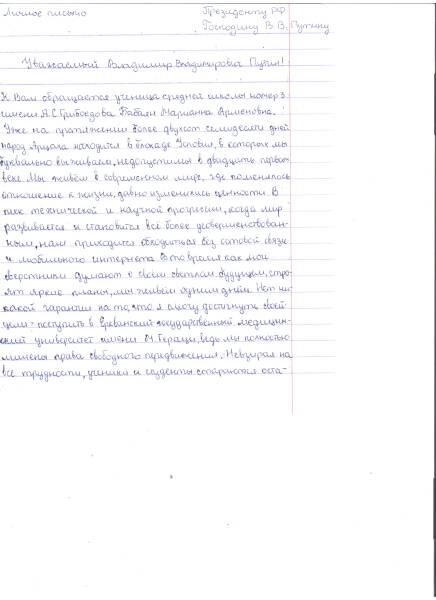 Личное письмо
Президенту РФ
Господину В.В. Путину
Уважаемый Владимир Владимирович Путин!
К Вам обращается ученица средней школы номер 3
имени А.С.Грибоедова Бабаян Марианна Арменовна.
Уже на протяжении более двухсот семидесяти дней
народ Арцаха находится в блокаде. Условия, в которых мы
буквально выживаем, недопустимы в двадцать первом
веке. Мы живём в современном мире, где поменялось
отношение к жизни, давно изменились ценности. В
пик технической и научной прогрессии, когда мир
развивается и становится всё более усовершенствован-
ным, нам приходится обходиться без сотовой связи
и мобильного интернета. В то время как мои
сверстники думают о своём светлом будущем, стро-
ят яркие планы, мы живём одним днём. Нет ни-
какой гарантии на то, что я смогу достигнуть своей
цели - поступить в Ереванский государственный медицин-
ский университет имени М.Гераци, ведь мы полностью
лишены права свободного передвижения. Невзирая на
все трудности, ученики и студенты стараются оста-